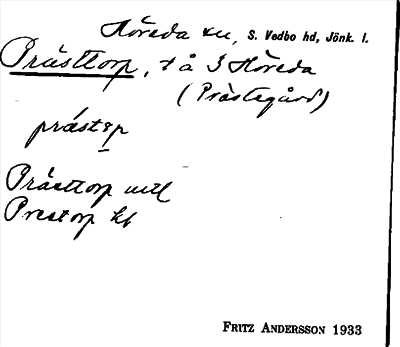 Höreda sn, S. Vedbo hd, Jönk. l.
Prästtorp, t å 3 Höreda
(Prästegård)
Prästtorp
Prestorp
FRITZ ANDERSSON 1933